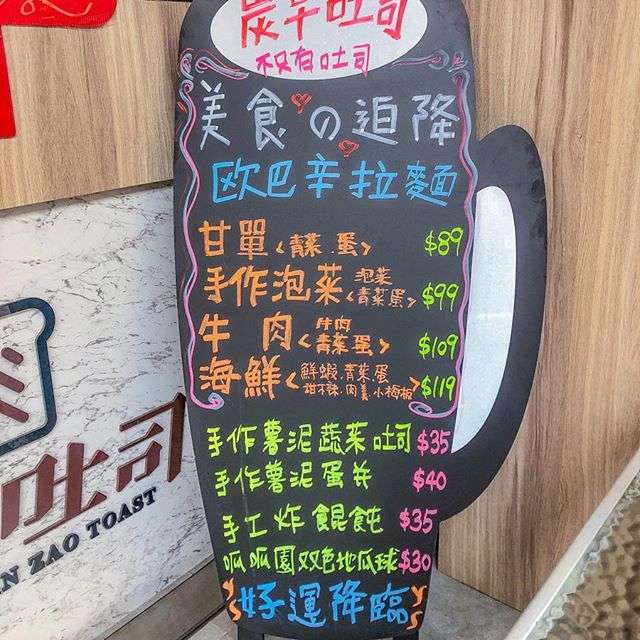 炭早吐司
不只有吐司
美食の迫降
欧巴辛拉麵
甘單<青菜.蛋> $89
手作泡菜<泡菜 青菜蛋> $99
牛肉<牛肉 青菜蛋> $109
海鮮<鮮蝦.青菜蛋 甜不辣.肉羹.小梅板> $119
手作薯泥蔬菜吐司 $35
手作薯泥蛋并 $40
手工炸餛飩 $35
呱呱園双色地瓜球 $30
好運降臨
吐司
AN ZAO TOAST